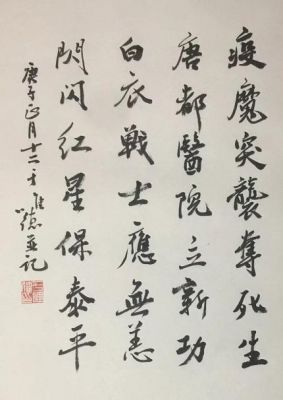 疫魔突襲奪死生
唐都醫院立新功
白衣戰士應無恙
閃闪红星保泰平
庚子正月十二